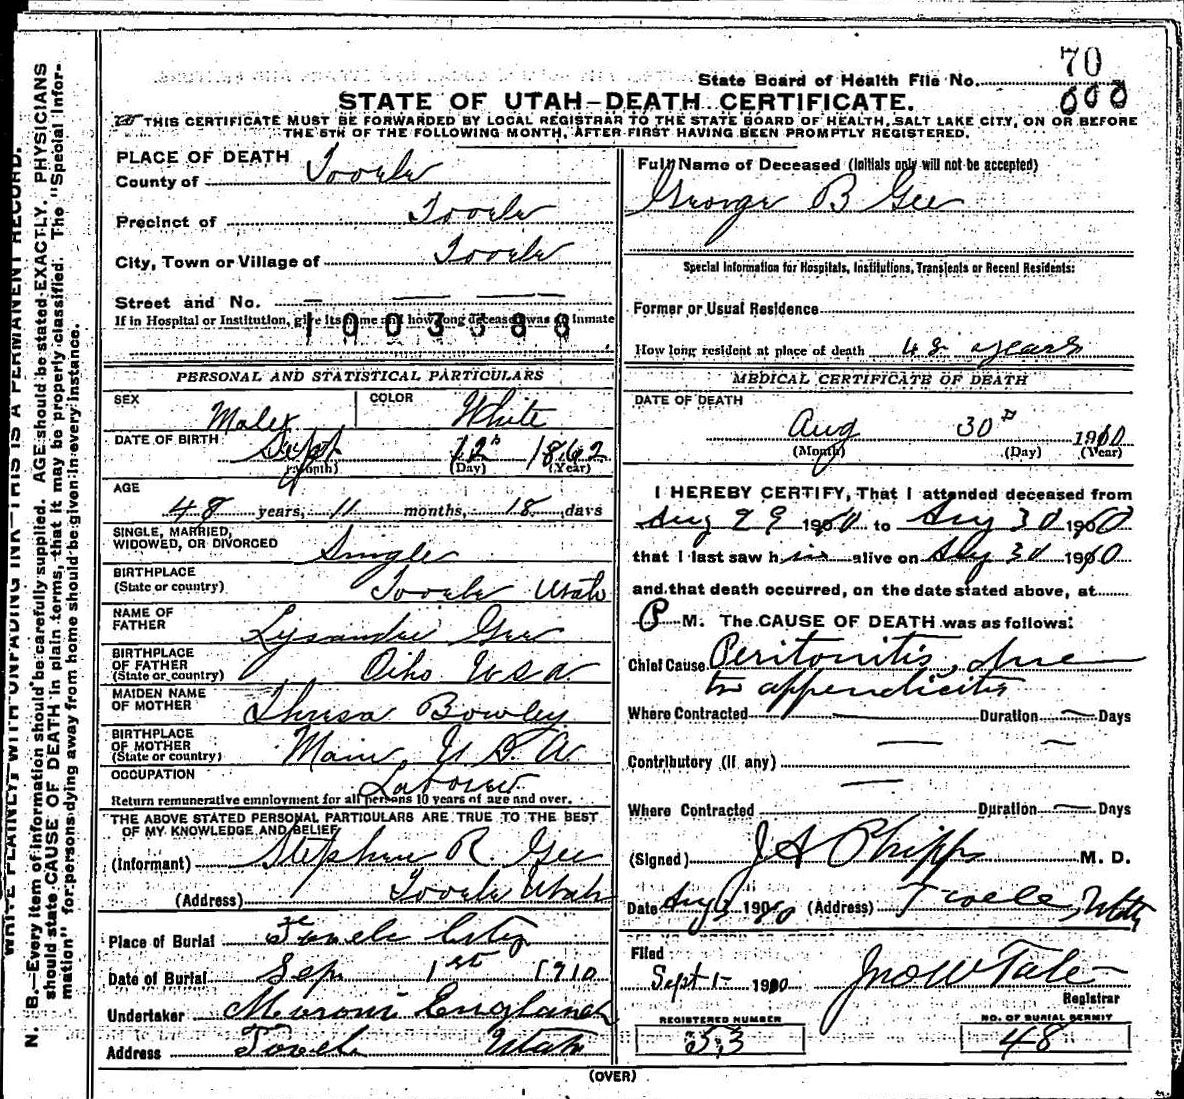 70
State Board of Health File No. 000
STATE OF UTAH—DEATH CERTIFICATE.
THIS CERTIFICATE MUST BE FORWARDED BY LOCAL REGISTRAR TO THE STATE BOARD OF HEALTH, SALT LAKE CITY, ON OR BEFORE
THE 5TH OF THE FOLLOWING MONTH, AFTER FIRST HAVING BEEN PROMPTLY REGISTERED.
WRITE PLAINLY, WITH UNFADING INK—THIS IS A PERMANENT RECORD.
N. B.—Every item of information should be carefully supplied. AGE should be stated EXACTLY. PHYSICIANS
should state CAUSE OF DEATH in plain terms, that it may be properly classified. The "Special Infor-
mation" for persons dying away from home should be given in every instance.
PLACE OF DEATH
County of Tooele
Precinct of Tooele
City, Town or Village of Tooele
Street and No. — — —
If in Hospital or Institution, give its name and how long deceased was an inmate
1003588
PERSONAL AND STATISTICAL PARTICULARS
SEX Male COLOR White
DATE OF BIRTH Sept 12 1862
(Month) (Day) (Year)
AGE
48 years, 11 months, 18 days
SINGLE, MARRIED,
WIDOWED, OR DIVORCED Single
BIRTHPLACE
(State or country) Tooele Utah
NAME OF
FATHER Lysander Gee
BIRTHPLACE
OF FATHER
(State or country) Oiho U S A.
MAIDEN NAME
OF MOTHER Theresa Bowley
BIRTHPLACE
OF MOTHER
(State or country) Main U. S. A.
OCCUPATION Laborer
Return remunerative employment for all persons 10 years of age and over.
THE ABOVE STATED PERSONAL PARTICULARS ARE TRUE TO THE BEST
OF MY KNOWLEDGE AND BELIEF
(Informant) Stephen R. Gee
(Address) Tooele Utah
Place of Burial Tooele City
Date of Burial Sep 1st 1910
Undertaker Moroni England
Address Tooele Utah
Full Name of Deceased (Initials only will not be accepted)
George B Gee
Special Information for Hospitals, Institutions, Transients or Recent Residents:
Former or Usual Residence
How long resident at place of death 48 years
MEDICAL CERTIFICATE OF DEATH
DATE OF DEATH
Aug 30 1910
(Month) (Day) (Year)
I HEREBY CERTIFY, That I attended deceased from
Aug 29 1910 to Aug 30 1910
that I last saw him alive on Aug 30 1910
and that death occurred, on the date stated above, at
P M. The CAUSE OF DEATH was as follows:
Chief Cause Peritonitis, due
to appendicitis
Where Contracted — Duration — Days
Contributory (if any) — —
Where Contracted — Duration — Days
(Signed) J A Phipps M. D.
Date Aug 1910 (Address) Tooele, Utah
Filed
Sept 1- 1910 Jno W Tate
Registrar
REGISTERED NUMBER
53
NO. OF BURIAL PERMIT
48
(OVER)